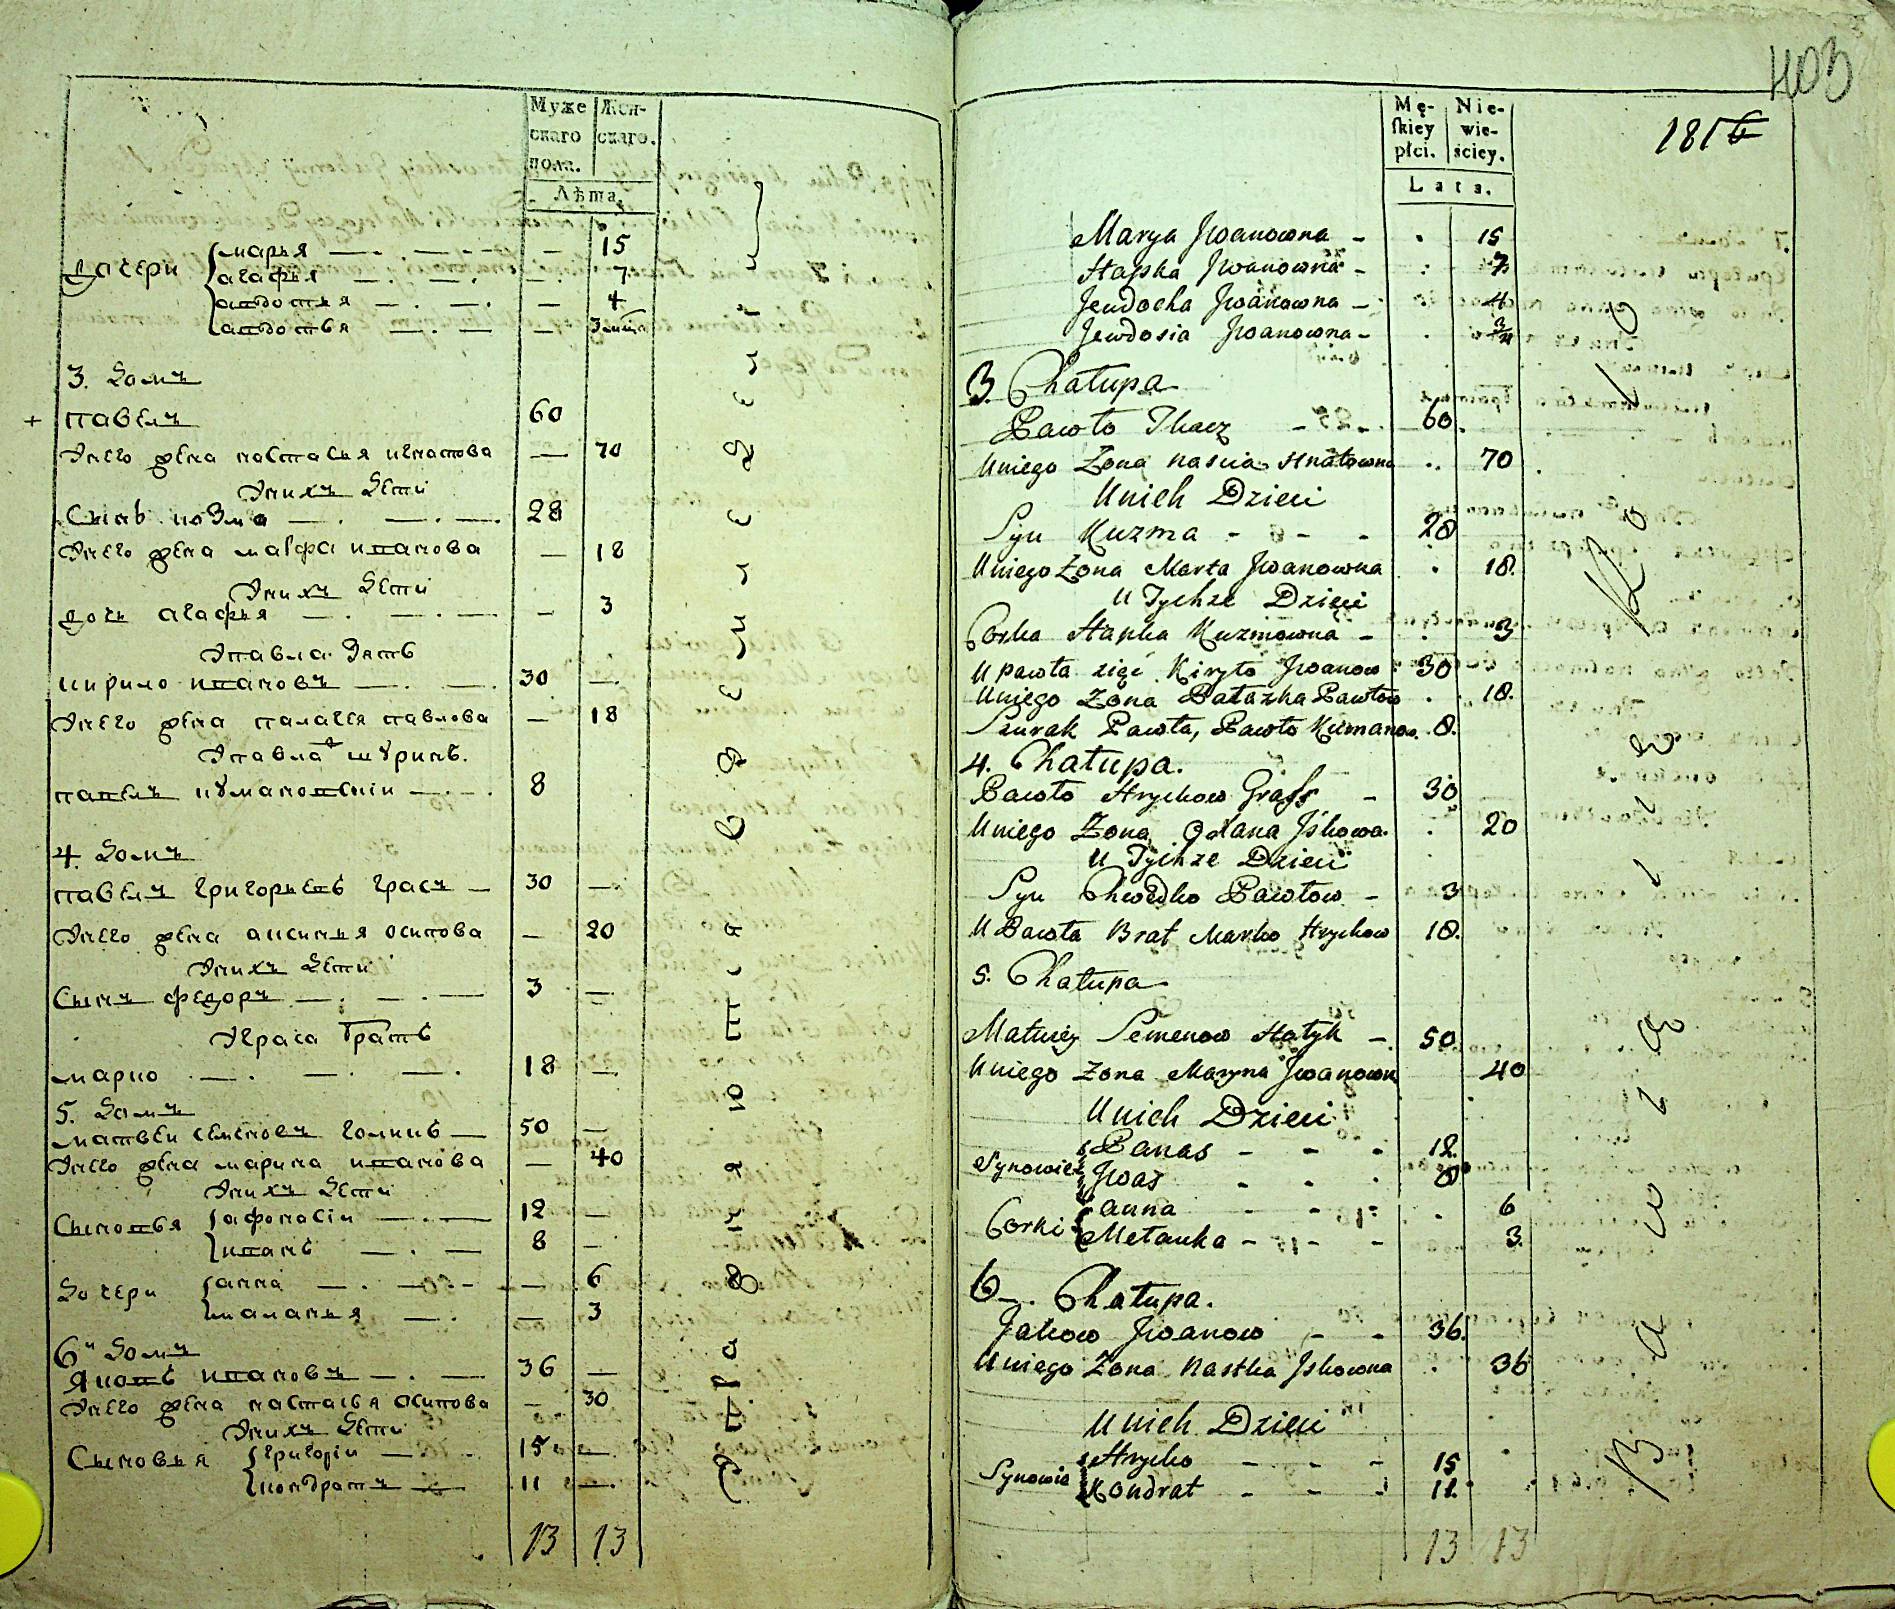 Муже
скаго
пола.
Жен-
скаго.
Лѣта.
дочери
марья — 15
агафья — 7
авдотья — 4
авдотья — 3 мца
3. Домъ
+ павелъ 60
Унего жена настасья игнатова — 70
Унихъ дети
Сынъ козма — 28
Унего жена марфа иванова — 18
Унихъ дети
дочь агафья — 3
Упавла зять
кирило ивановъ — 30 —
Унего жена палагея павлова — 18
Упавла шуринъ.
павелъ кумановскии — 8
4 Домъ
павелъ григорьевъ грасъ — 30 —
Унего жена аксинья осипова — 20
Унихъ дети
Сынъ федоръ — 3 —
Уграса братъ
марко — 18 —
5. Домъ
матвеи семеновъ — 50 —
Унего жена марина иванова — 40
Унихъ дети
Сыновья
афонасіи — 12 —
иванъ — 8 —
Дочери
анна — 6
маланья — 3
6й Домъ
Яковъ ивановъ — 36 —
Унего жена настасья осипова — 30
Унихъ дети
Сыновья
григоріи — 15 —
кондратъ — 11 —
13 13
403
1816
Mę-
skiey
płci.
Nie-
wie-
ściey.
Lata.
Marya Jwanowna - 15
Hapka Jwanowna - 7
Jewdocha Jwanowna - 4
Jewdosia Jwanowna - 3/m
3. Chałupa
Pawło Tkacz - 60.
Uniego Żona Nascia Hnatowna 70
Unich Dzieci
Syn Kuzma - - - 28
Uniego Żona Marta Jwanowna 18.
U Tychże Dzieci
Corka Hapka Kuzmowna - 3
U Pawła zięć Kiryło Jwanow 30
Uniego Żona Pałazka Pawłow 18.
Szurak Pawła, Pawło Kumanow. 8.
4. Chałupa.
Pawło Hrychow Grass - 30
Uniego Żona Oxana Jśkowa. 20
U Tychże Dzieci
Syn Chwedko Pawłow - 3
U Pawła Brat Marko Hrychow 18.
5. Chałupa
Matwiey Semenow Hołyk - 50
Uniego Żona Maryna Jwanown 40
Unich Dzieci
Synowie
Panas - - - 12.
Jwas - - - 8
Corki
Anna - - - 6
Mełanka - - - 3.
6. Chałupa.
Jakow Jwanow - - 36.
Uniego Żona Nastka Jśkowna 36
Unich Dzieci
Synowie
Hrycko - - - 15
Kondrat - - - 11.
13 13